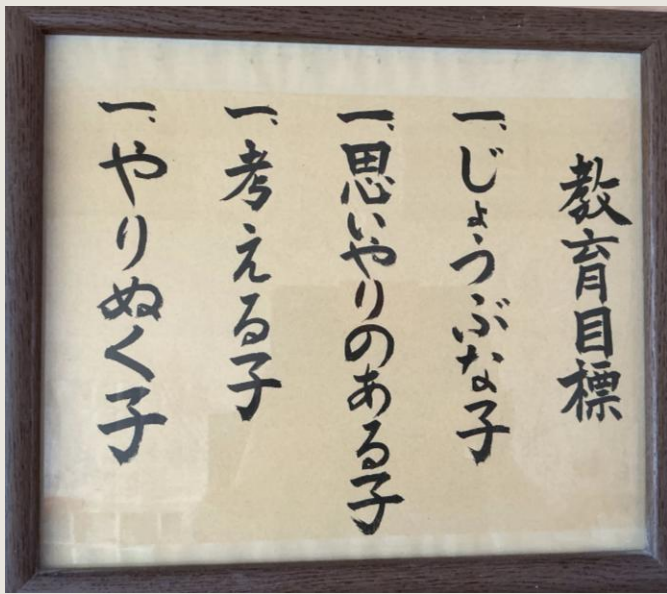 教育目標
一、じょうぶな子
一、思いやりのある子
一、考える子
一、やりぬく子